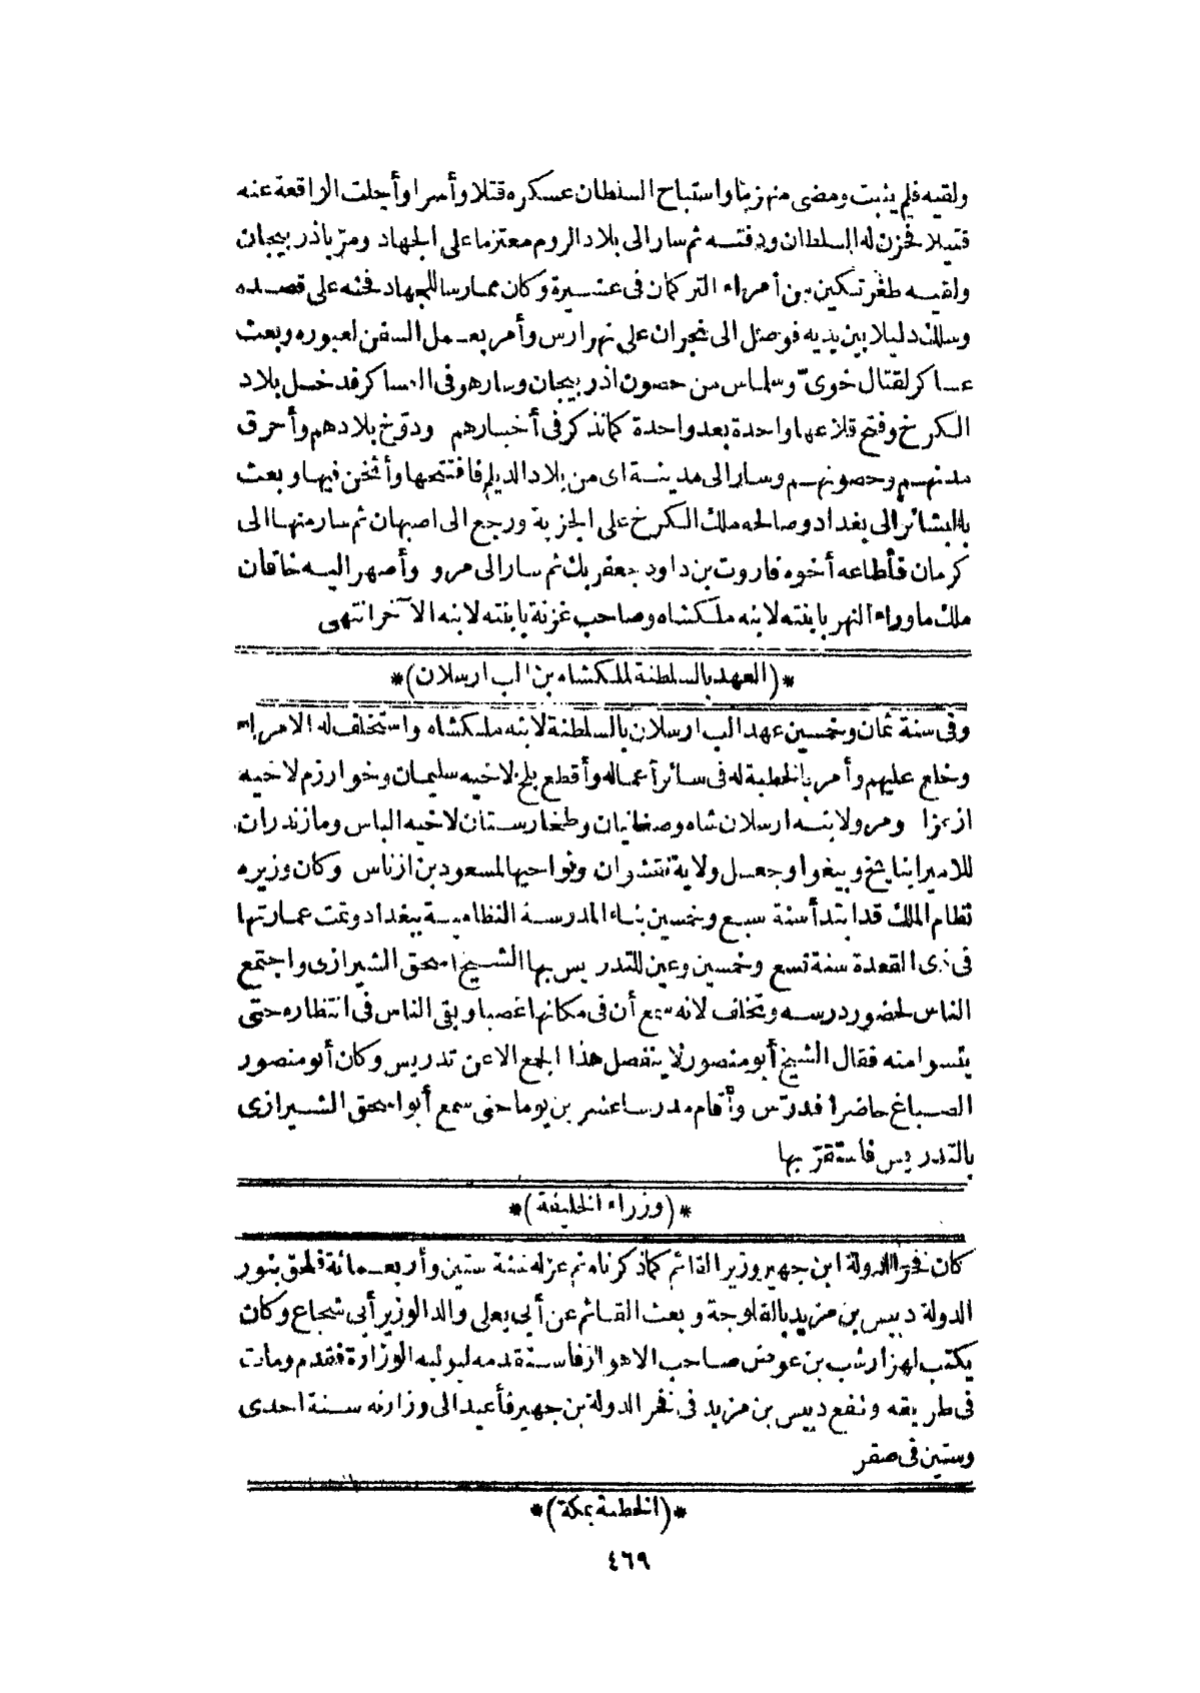 ولقيه فلم يثبت ومضى منهزما واستباح السلطان عسكره قتلا وأسرا وأجلت الواقعة عنه
قتيلا فحزن له السلطان ودفنه ثم سار الى بلاد الروم معتزما على الجهاد ومرّ باذربيجان
ولقيه طغرتكين من أمراء التركمان فى عشيرة وكان ممارسا للجهاد فحثه على قصده
وسلك دليلا بين يديه فوصل الى نجران على نهر ارس وأمر بعمل السفن لعبوره وبعث
عساكر لقتال خوىّ وسلماس من حصون اذربيجان وسار هو فى العساكر فدخل بلاد
الكرخ وفتح قلاعها واحدة بعد واحدة كما نذكر فى أخبارهم ودوّخ بلادهم وأحرق
مدنهم وحصونهم وسار الى مدينة اى من بلاد الديلم فافتتحها وأثخن فيها وبعث
بالبشائر الى بغداد وصالحه ملك الكرخ على الجزية ورجع الى اصبهان ثم سار منها الى
كرمان فأطاعه أخوه قاروت بن داود جعفر بك ثم سار الى مرو وأصهر اليه خاقان
ملك ما وراء النهر بابنته لابنه ملكشاه وصاحب غزنة بابنته لابنه الآخر انتهى
*(العهد بالسلطنة لملكشاه بن الب ارسلان)*
وفى سنة ثمان وخمسين عهد الب ارسلان بالسلطنة لابنه ملكشاه واستخلف له الامراء
وخلع عليهم وأمر بالخطبة له فى سائر أعماله وأقطع بلخ لاخيه سليمان وخوارزم لاخيه
ازعزا ومرو لابنه ارسلان شاه وصغانيان وطخارستان لاخيه الياس ومازندران
للامير اينايخ وبيغوا وجعل ولاية نقشوان ونواحيها لمسعود بن ازناس وكان وزيره
نظام الملك قد ابتدأ سنة سبع وخمسين بناء المدرسة النظامية ببغداد وتمت عمارتها
فى ذى القعدة سنة تسع وخمسين وعين للتدريس بها الشيخ اسحق الشيرازى واجتمع
الناس لحضور درسه وتخلف لانه سمع أن فى مكانها غصبا وبقى الناس فى انتظاره حتى
يئسوا منه فقال الشيخ أبو منصور لا ينفصل هذا الجمع الا عن تدريس وكان أبو منصور
الصباغ حاضرا فدرّس وأقام مدرسا عشرين يوما حتى سمع أبو اسحق الشيرازى
بالتدريس فاستقرّ بها
*(وزراء الخليفة)*
كان فخر الدولة ابن جهير وزير القائم كما ذكرناه ثم عزله سنة ستين وأربعمائة فلحق بنور
الدولة دبيس بن مزيد بالفلوجة وبعث القائم عن أبى يعلى والد الوزير أبى شجاع وكان
يكتب لهزارشب بن عوض صاحب الاهواز فاستقدمه ليوليه الوزارة فقدم ومات
فى طريقه وشفع دبيس بن مزيد فى فخر الدولة بن جهير فأعيد الى وزارته سنة احدى
وستين فى صفر
*(الخطبة بمكة)*
٤٦٩